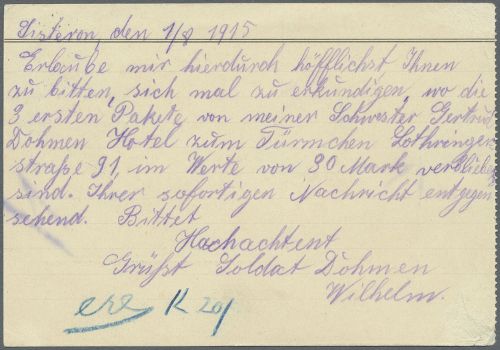 Sisteron, den 1/8 1915
Erlaube mir hierdurch höfflichst Ihnen
zu bitten, sich mal zu erkundigen, wo die
3 ersten Pakete von meiner Schwester Gertrud
Dohmen Hotel zum Türmchen Lothringer
straße 91, im Werte von 30 Mark verbliebe
sind. Ihrer sofortigen Nachricht entgegen
sehend. Bittet
Hochachtent
Grüßt Soldat Dohmen
Wilhelm.
K 20/